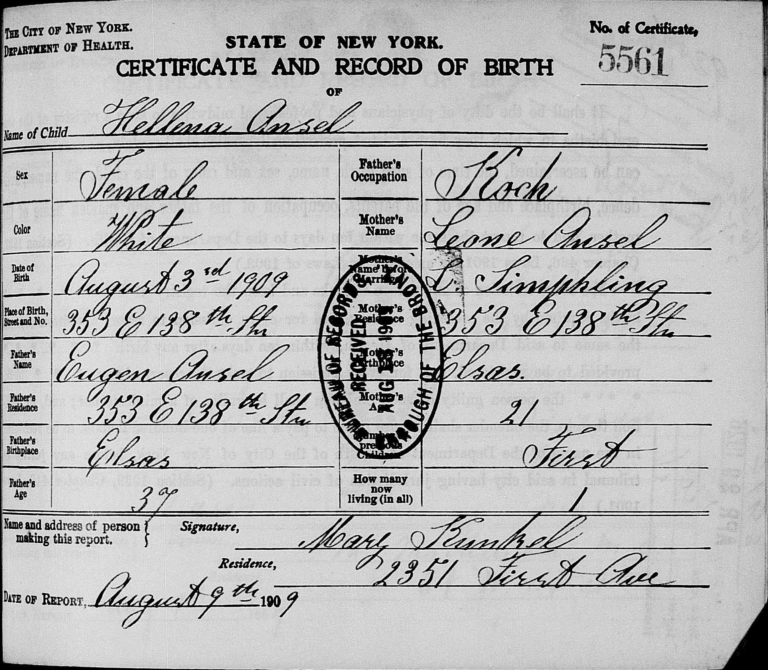 THE CITY OF NEW YORK.
DEPARTMENT OF HEALTH.
STATE OF NEW YORK.
No. of Certificate,
5561
CERTIFICATE AND RECORD OF BIRTH
OF
Name of Child Hellena Ansel
Sex Female
Father's Occupation Koch
Color White
Mother's Name Leone Ansel
Date of Birth August 3rd 1909
Mother's Name before Marriage L. Simphling
Place of Birth, Street and No. 353 E 138th Str
Mother's Residence 353 E 138th Str
Father's Name Eugen Ansel
Mother's Birthplace Elsas.
Father's Residence 353 E 138th Str
Mother's Age 21
Father's Birthplace Elsas
Number of previous Children First
Father's Age 37
How many now living (in all) 1
BUREAU OF RECORDS
RECEIVED
AUG 1909
BOROUGH OF THE BRONX
Name and address of person making this report.
Signature, Mary Kunkel
Residence, 2351 First Ave
DATE OF REPORT, August 9th 1909